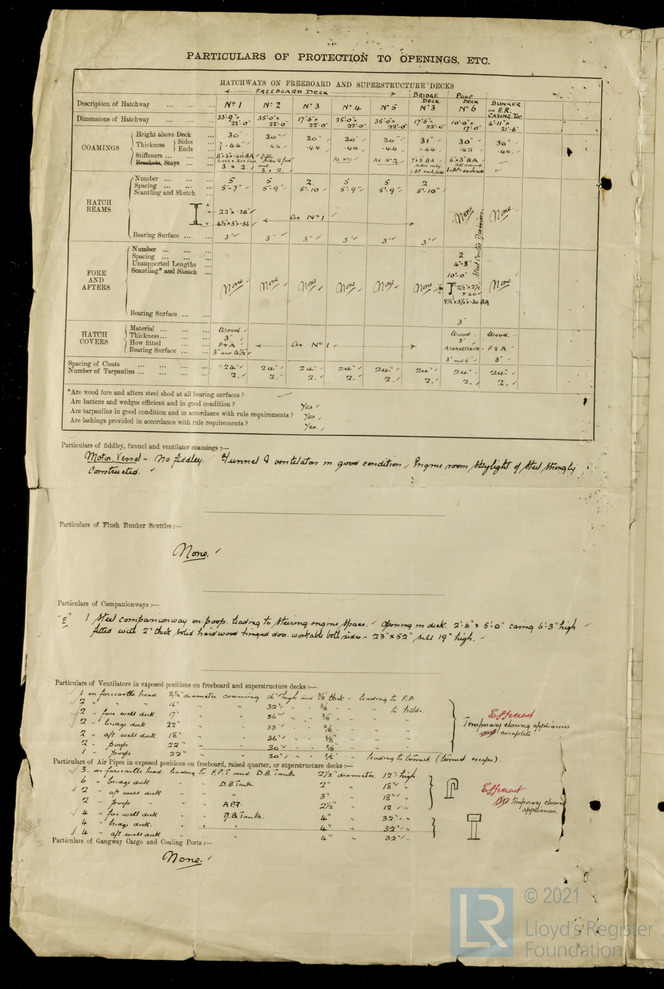 PARTICULARS OF PROTECTION TO OPENINGS, ETC.
HATCHWAYS ON FREEBOARD AND SUPERSTRUCTURE DECKS
FREEBOARD DECK
Description of Hatchway ... ... Nº 1 Nº 2 Nº 3 Nº 4 Nº 5 BRIDGE DECK Nº 3 POOP DECK Nº 6 BUNKER in E.R. CASING Tk
Dimensions of Hatchway ... ... 33'·0" x 22'·0" 35'·0" x 22'·0" 17'·6" x 22'·0" 35'·0" x 22'·0" 35'·0" x 22'·0" 17'·6" x 22'·0" 10'·0" x 17'·0"
COAMINGS
Height above Deck ... 30" 30" 30" 30" 30" 31" 30" 30"
Thickness Sides Ends .44 .44 .44 .44 .44 .44
Stiffeners ... ...
Brackets, Stays ...
HATCH BEAMS
Number ... ... ... 5 5 2 5 5 2 None None
Spacing ... ... ... 5'-7" 5'-9" 5'-10 5'-9" 5'-9" 5'-10"
Scantling and Sketch As Nº 1
Bearing Surface ... ... 3" 3" 3" 3" 3" 3"
FORE AND AFTERS
Number ... ... ... 2
Spacing ... ... ...
Unsupported Lengths ... 10'·0"
Scantling* and Sketch ...
None None None None None None None
Bearing Surface ... ... 3"
HATCH COVERS
Material ... ... ... Wood Wood Wood
Thickness ... ... ... 3" 3"
How fitted ... ... F & A As Nº 1 ATHWARTSHIPS F & A
Bearing Surface ... ... 3" and 4½" 3" and 6" 3"
Spacing of Cleats ... ... ... 24" 24" 24" 24" 24" 24" 24" 24"
Number of Tarpaulins ... ... ... 2 2 2 2 2 2 2 2
*Are wood fore and afters steel shod at all bearing surfaces?
Are battens and wedges efficient and in good condition? Yes
Are tarpaulins in good condition and in accordance with rule requirements? Yes
Are lashings provided in accordance with rule requirements? Yes
Particulars of fiddley, funnel and ventilator coamings :—
Motor Vessel - No fiddley. Funnel & ventilators in good condition. Engine room skylight of steel strongly
constructed.
Particulars of Flush Bunker Scuttles:—
None.
Particulars of Companionways :—
"E" 1 Steel companionway on poop leading to steering engine space. Opening in deck 2'·6" x 5'·0" casing 6'·3" high
fitted with 2" thick solid hardwood hinged door workable both sides - 23" x 52" sill 19" high.
Particulars of Ventilators in exposed positions on freeboard and superstructure decks :—
1 on forecastle head 8½" diameter coaming 16" high and 3/8 thick - leading to F.P.
2 " " " 16" " " 32" " 3/8 " " to holds.
2 - fore well deck 17" " " 36" " 3/8 "
2 - bridge deck 22" " " 33" " 3/8 "
2 - aft well deck 18" " " 36" " 3/8 "
2 - poop 22" " " 30" " 3/8 "
1 - poop 22" " " 30" " 3/8 " - leading to tunnel (tunnel escape)
Efficient
Temporary closing appliances
complete
Particulars of Air Pipes in exposed positions on freeboard, raised quarter, or superstructure decks :—
3 on forecastle head leading to F.P.T and D.B Tanks 2½" diameter 12" high
6 - bridge deck " " D.B Tanks 2" " 18" "
2 - aft well deck " " 3" " 18" "
2 - poop " " A.P.T. 2½" " 12 "
4 - fore well deck " " D.B Tanks. 4" " 32" "
4 - bridge deck " " " 4" " 32" "
4 - aft well deck " " " 4" " 32" "
Efficient
Temporary closing
appliances.
Particulars of Gangway Cargo and Coaling Ports :—
None.
LR
© 2021
Lloyd's Register
Foundation